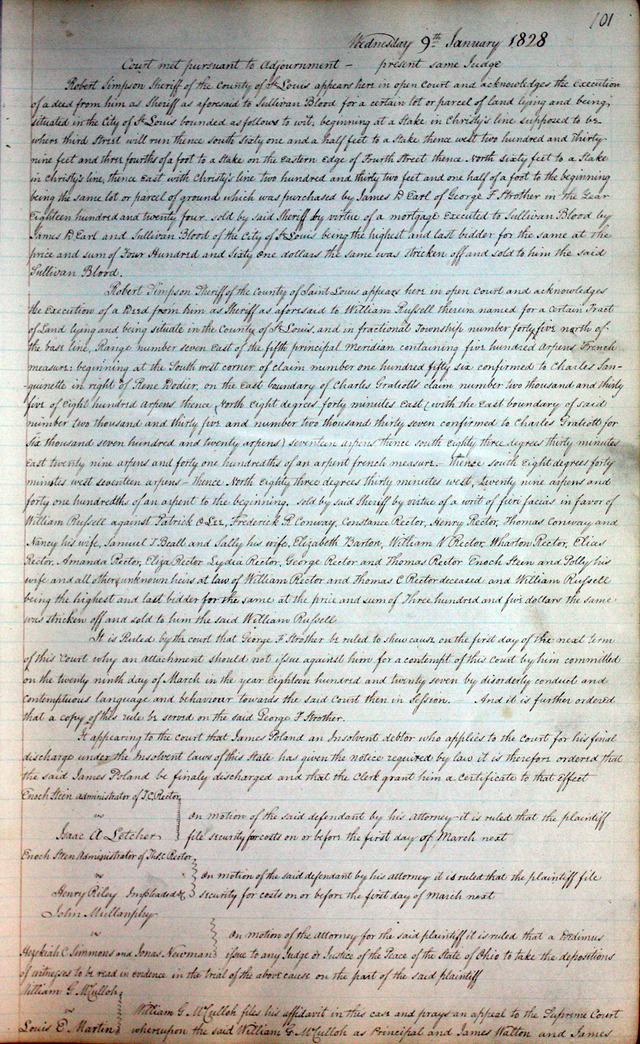 101
Wednesday 9th January 1828
Court met pursuant to Adjournment – present same Judge
Robert Simpson Sheriff of the county of St Louis appears here in open Court and acknowledges the execution
of a deed from him as Sheriff as aforesaid to Sullivan Blood for a certain lot or parcel of land lying and being,
situated in the City of St Louis bounded as follows to wit, beginning at a Stake in Christy's line supposed to be
where third Street will run thence south sixty one and a half feet to a Stake thence west two hundred and thirty
nine feet and three fourths of a foot to a Stake on the Eastern edge of Fourth Street thence North sixty feet to a Stake
in Christy's line, thence East with Christy's line two hundred and thirty two feet and one half of a foot to the beginning
being the same lot or parcel of ground which was purchased by James D Earl of George F Strother in the Year
Eighteen hundred and twenty four. sold by said Sheriff by virtue of a mortgage Executed to Sullivan Blood by
James D Earl and Sullivan Blood of the City of St Louis being the highest and last bidder for the same at the
price and sum of Four Hundred and Sixty One dollars the same was stricken off and sold to him the said
Sullivan Blood.
Robert Simpson Sheriff of the County of Saint Louis appears here in open Court and acknowledges
the Execution of a Deed from him as Sheriff as aforesaid to William Russell therein named for a certain Tract
of Land lying and being situate in the County of St Louis and in fractional Township number forty five north of
the base line, Range number seven East of the fifth principal Meridian containing five hundred Arpens French
measure: beginning at the South west corner of claim number one hundred fifty six confirmed to Charles San-
guinette in right of Rene Dodier, on the East boundary of Charles Gratiotts claim number two thousand and thirty
five of Eight hundred arpens thence North eight degrees forty minutes East (with the East boundary of said
number two thousand and thirty five and number two thousand thirty seven confirmed to Charles Gratiott for
six thousand seven hundred and twenty arpens) seventeen arpens thence south eighty three degrees thirty minutes
East twenty nine arpens and forty one hundredths of an arpent french measure.– thence south eight degrees forty
minutes west seventeen arpens – thence North Eighty three degrees thirty minutes west, twenty nine arpens and
forty one hundredths of an arpent to the beginning. sold by said Sheriff by virtue of a writ of fieri facias in favor of
William Russell against Patrick O Lee, Frederick R Conway, Constance Rector, Henry Rector, Thomas Conway and
Nancy his wife, Samuel T Beall and Sally his wife, Elizabeth Barton, William V Rector, Wharton Rector, Elias
Rector, Amanda Rector, Eliza Rector Lydia Rector, George Rector and Thomas Rector Enoch Steen and Polly his
wife and all other unknown heirs at law of William Rector and Thomas C Rector deceased and William Russell
being the highest and last bidder for the same at the price and sum of Three hundred and five dollars the same
was stricken off and sold to him the said William Russell
It is Ruled by the court that George F Strother be ruled to shew cause on the first day of the next term
of this Court why an attachment should not issue against him for a contempt of this court by him committed
on the twenty ninth day of March in the year eighteen hundred and twenty seven by disorderly conduct and
contemptuous language and behaviour towards the said Court then in Session. And it is further ordered
that a copy of this rule be served on the said George F Strother.
It appearing to the court that James Poland an Insolvent debtor who applies to the Court for his final
discharge under the Insolvent laws of this State has given the notice required by law it is therefore ordered that
the said James Poland be finaly discharged and that the Clerk grant him a certificate to that effect
Enoch Steen administrator of T.C. Rector
vs
Isaac A Letcher
On motion of the said defendant by his attorney it is ruled that the plaintiff
file security for costs on or before the first day of March next
Enoch Steen Administrator of Thos C Rector
vs
Henry Riley Impleaded &c
On motion of the said defendant by his attorney it is ruled that the plaintiff file
security for costs on or before the first day of march next
John Mullanphy
vs
Hezekiah C Simmons and Jonas Newman
On motion of the attorney for the said plaintiff it is ruled that a Dedimus
issue to any Judge or Justice of the Peace of the State of Ohio to take the depositions
of witnesses to be read in evidence in the trial of the above cause on the part of the said plaintiff
William G McCulloh
vs
Louis E Martin
William G McCulloh files his affidavit in this case and prays an appeal to the Supreme Court
whereupon the said William G McCulloh as Principal and James Walton and James